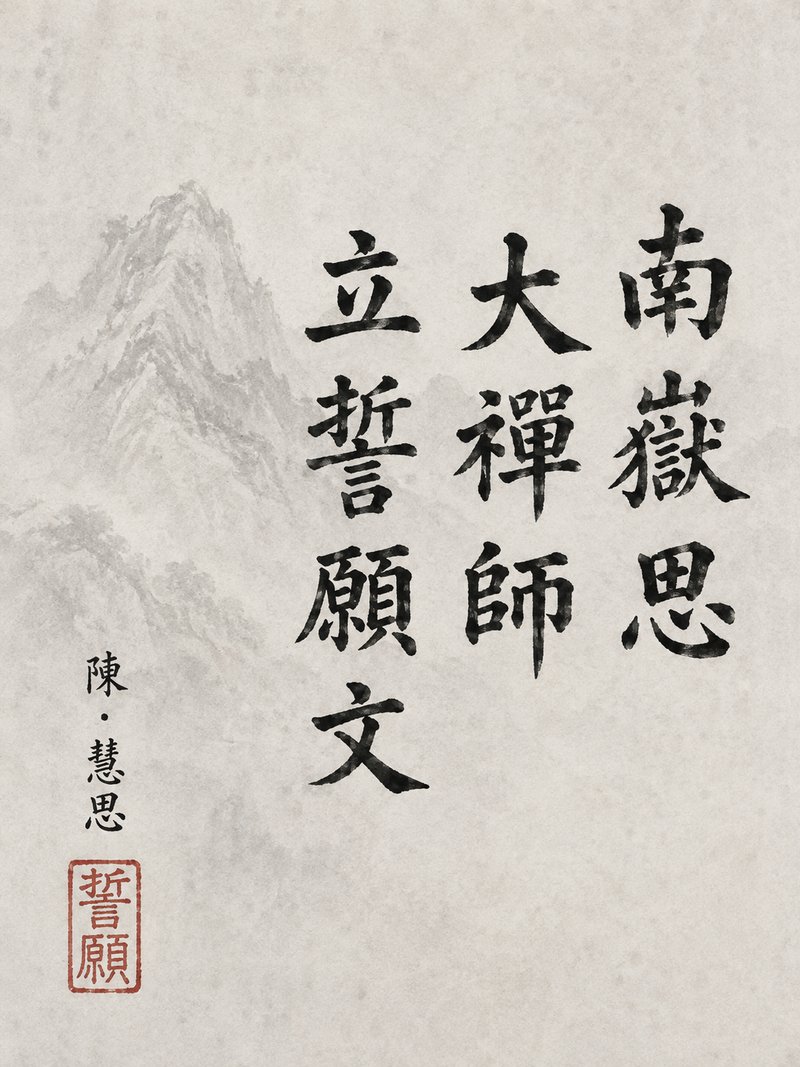 南嶽思
大禪師
立誓願文
陳·慧思
誓願